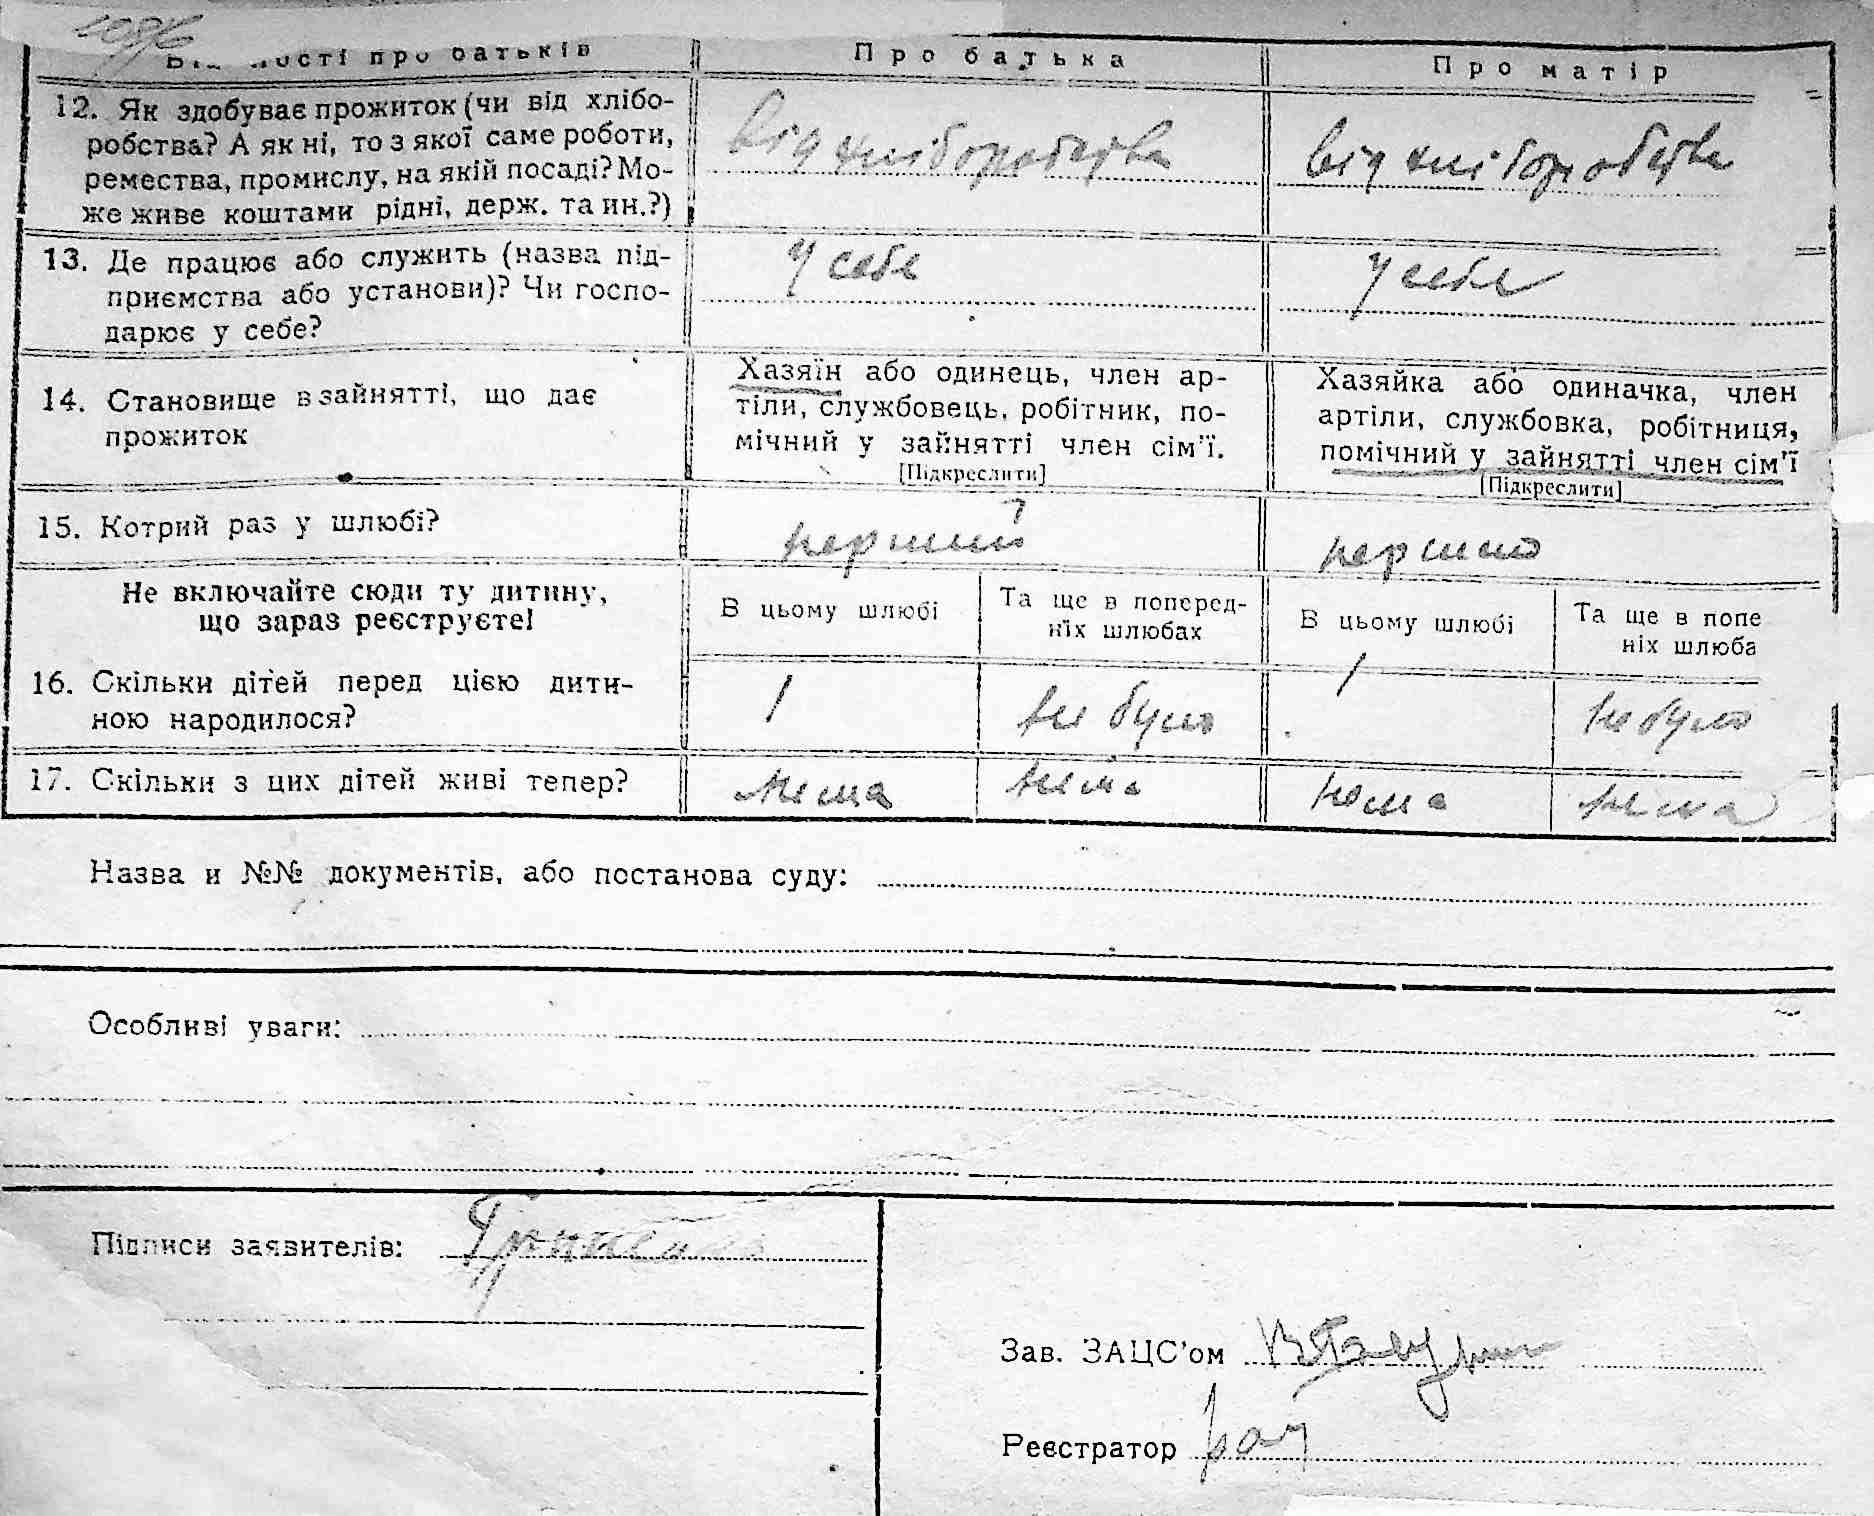 108б
Відомості про батьків Про батька Про матір
12. Як здобуває прожиток (чи від хлібо-
робства? А як ні, то з якої саме роботи,
ремества, промислу, на якій посаді? Мо-
же живе коштами рідні, держ. та ин.?)
від хліборобства від хліборобства
13. Де працює або служить (назва під-
приємства або установи)? Чи госпо-
дарює у себе?
у себе у себе
14. Становище в зайнятті, що дає
прожиток
Хазяїн або одинець, член ар-
тіли, службовець, робітник, по-
мічний у зайнятті член сім'ї.
[Підкреслити]
Хазяйка або одиначка, член
артіли, службовка, робітниця,
помічний у зайнятті член сім'ї
[Підкреслити]
15. Котрий раз у шлюбі?
перший перший
Не включайте сюди ту дитину,
що зараз реєструєте!
В цьому шлюбі
Та ще в поперед-
ніх шлюбах
В цьому шлюбі
Та ще в попе
ніх шлюба
16. Скільки дітей перед цією дити-
ною народилося?
1 не було 1 не було
17. Скільки з цих дітей живі тепер?
нема нема нема нема
Назва и №№ документів, або постанова суду:
Особливі уваги:
Підписи заявителів:
Зав. ЗАЦС'ом
Реєстратор